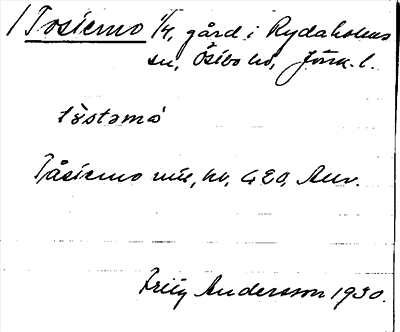 Tosiemo 1/4, gård i Rydaholms
sn, Östbo hd, Jönk. l.
tǫ̀stəmɷ
Tåsiemo mtl, hd, GEO, Auv.
Andersson 1930.